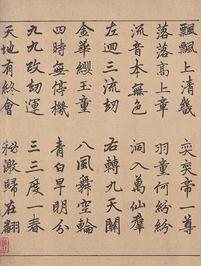 飄飄上清幾 奕奕帝一尊
落落高上章 羽童何紛紛
流音本無色 洞入萬仙群
左迴三流刼 右轉九天關
金華纓玉童 八風舞空輪
四時無停機 青白早明分
九九改刼運 三三度一春
天地有終會 歸在翻